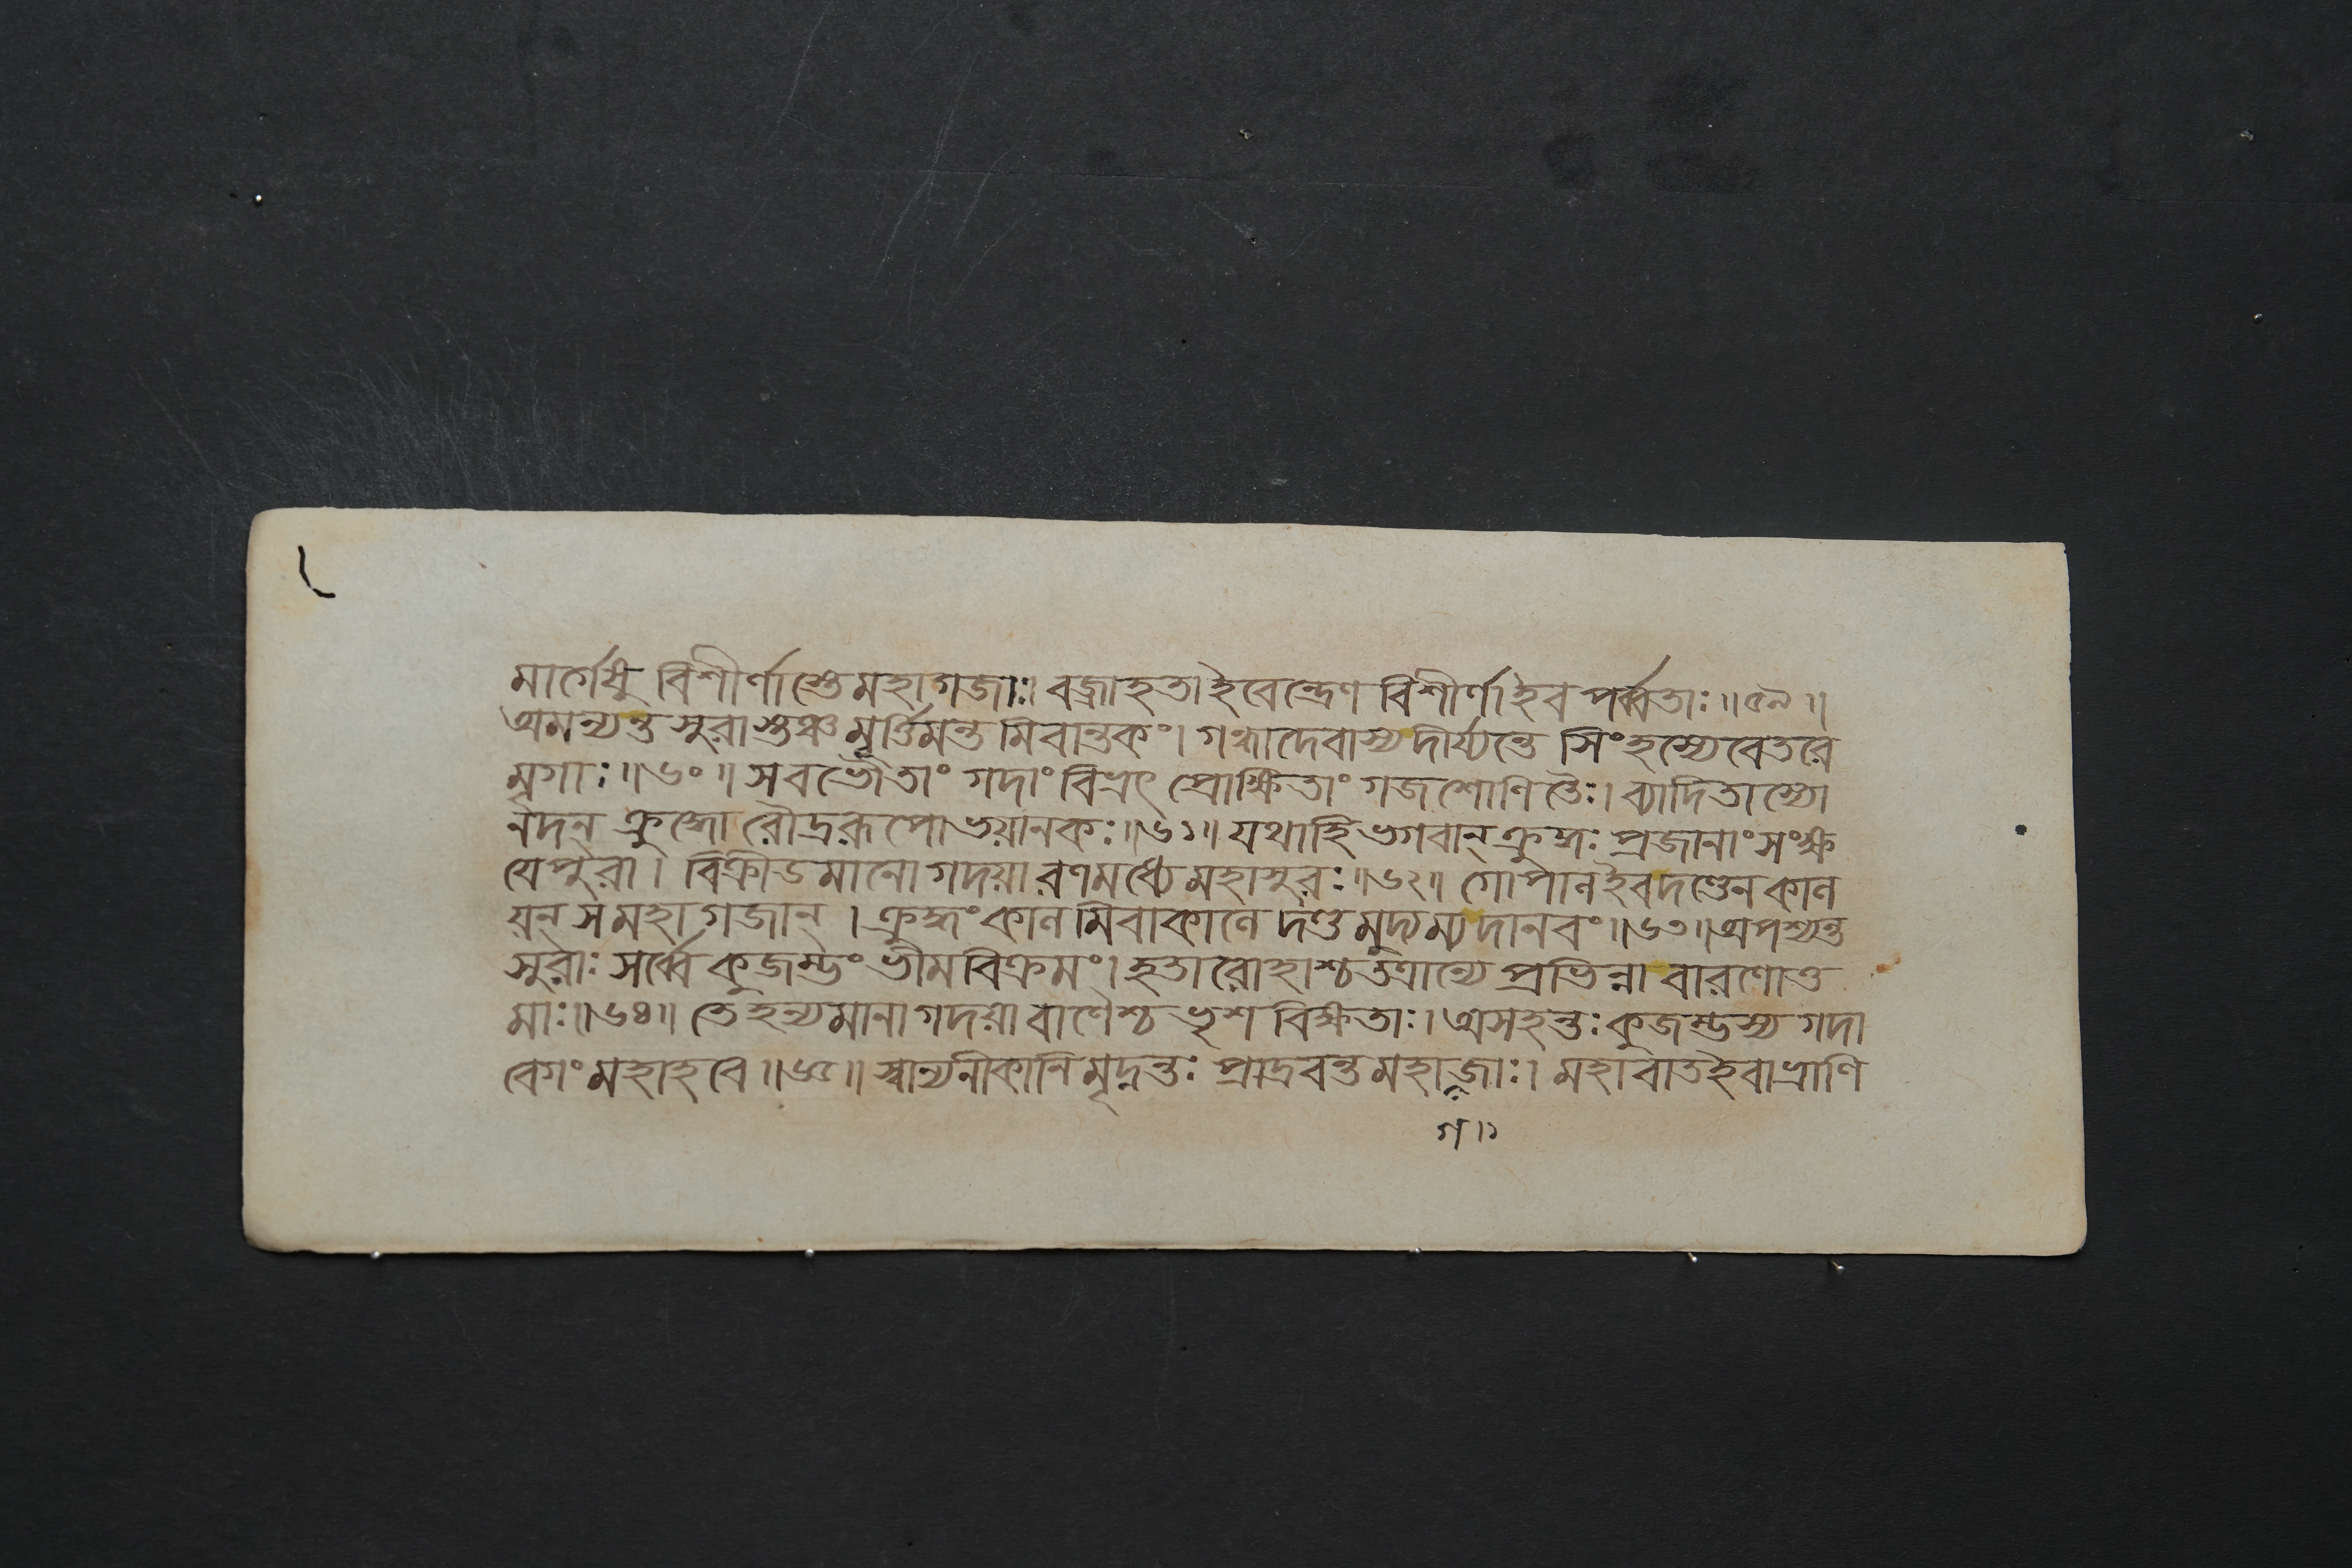 মার্গেষু বিশীর্ণাস্তে মহাগজাঃ। বজ্রাহতাইবেন্দ্রেণ বিশীর্ণাইব পর্ব্বতাঃ॥৫৯॥
অমন্যন্ত সুরাস্তঞ্চ মূর্ত্তিমন্ত মিবান্তকং। গন্ধাদেবাস্য দীর্য্যন্তে সিংহস্যেবেতরে
মৃগাঃ॥৬০॥ স বভৌ তাং গদাং বিভ্রৎ প্রোক্ষিতাং গজশোণিতৈঃ। ব্যাদিতাস্যো
নদন্ ক্রুদ্ধো রৌদ্ররূপো ভয়ানকঃ॥৬১॥ যথাহি ভগবান্ ক্রুদ্ধঃ প্রজানাং সংক্ষ
যে পুরা। বিক্রীডমানো গদয়া রণমধ্যে মহাসুরঃ॥৬২॥ গোপানইব দণ্ডেন কান
য়ন্ স মহাগজান্। ক্রুদ্ধং কান মিবাকানে দণ্ড মুদ্যম্য দানবং॥৬৩॥ অপশ্যন্ত
সুরাঃ সর্ব্বে কুজম্ভং ভীমবিক্রমং। হতারোহাশ্চ তত্রান্যে প্রভিন্না বারণোত্ত
মাঃ॥৬৪॥ তে হন্যমানা গদয়া বাণৈশ্চ ভৃশ বিক্ষতাঃ। অসহন্তঃ কুজম্ভস্য গদা
বেগং মহাহবে॥৬৫॥ স্বান্যনীকানি মৃদ্নন্তঃ প্রাদ্রবন্ত মহাজাঃ। মহাবাতইবাভ্রাণি
গ॥১